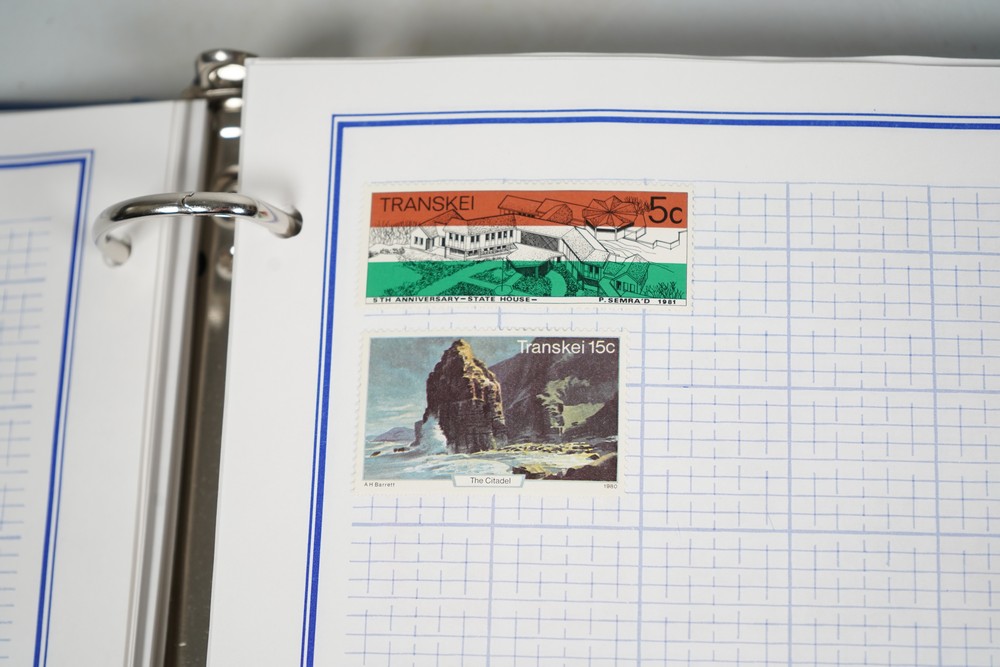 TRANSKEI 5c
5TH ANNIVERSARY–STATE HOUSE– P. SEMRA'D 1981
Transkei 15c
The Citadel
A H Barrett 1980